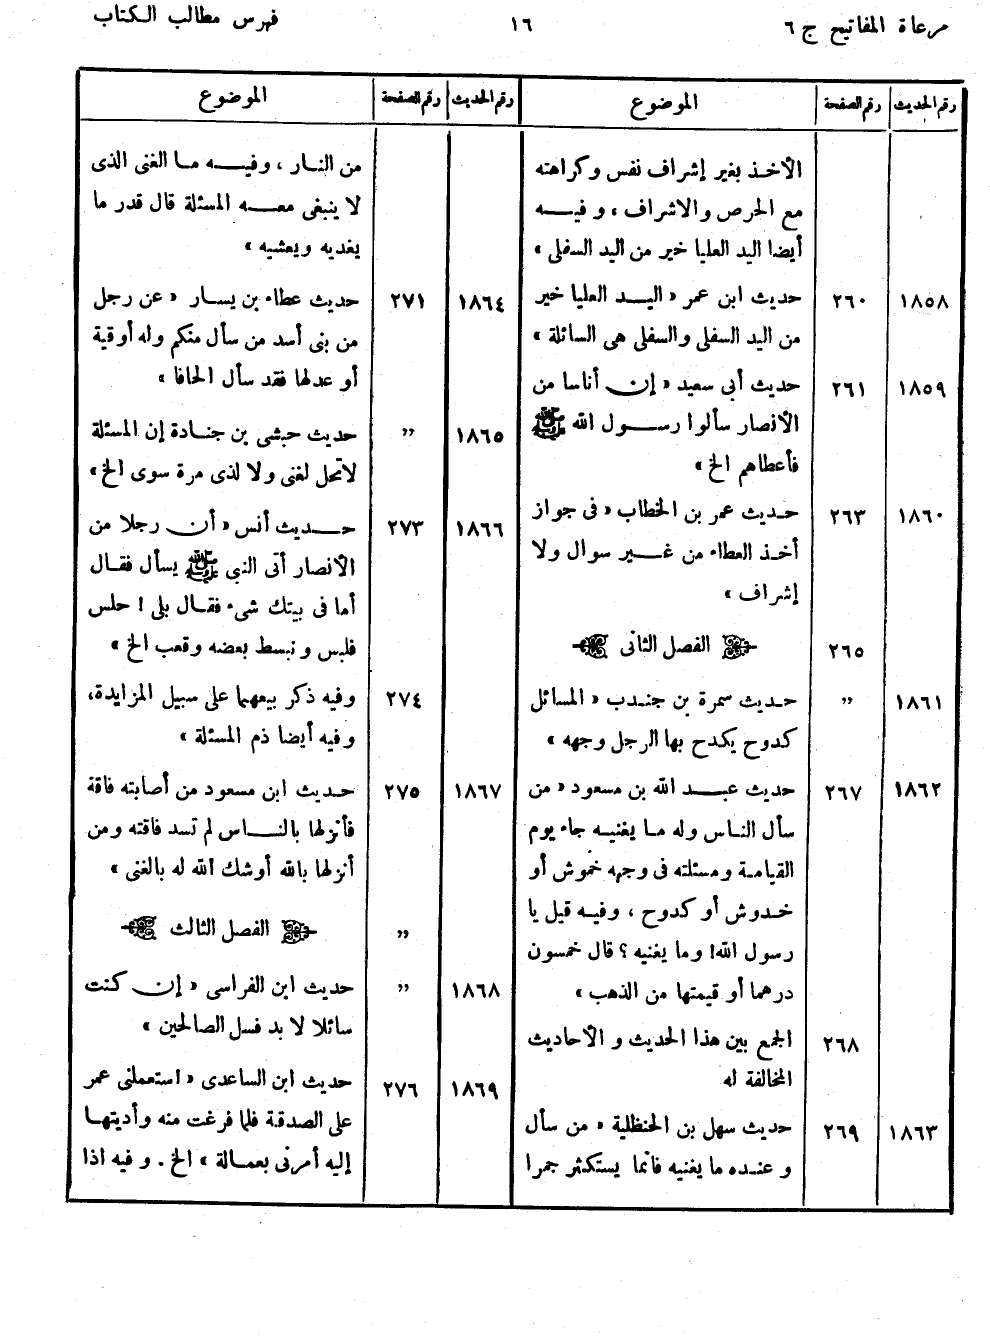 مرعاة المفاتيح ج ٦
١٦
فهرس مطالب الكتاب
رقم الحديث رقم الصفحة الموضوع
الأخذ بغير إشراف نفس وكراهته
مع الحرص والاشراف ، و فيه
أيضا اليد العليا خير من اليد السفلى »
١٨٥٨ ٢٦٠ حديث ابن عمر « اليد العليا خير
من اليد السفلى والسفلى هى السائلة »
١٨٥٩ ٢٦١ حديث أبى سعيد « إن أناسا من
الأنصار سألوا رسول الله ﷺ
فأعطاهم الخ »
١٨٦٠ ٢٦٣ حديث عمر بن الخطاب « فى جواز
أخذ العطاء من غير سوال ولا
إشراف »
٢٦٥ الفصل الثانى
١٨٦١ ,, حديث سمرة بن جندب « المسائل
كدوح يكدح بها الرجل وجهه »
١٨٦٢ ٢٦٧ حديث عبد الله بن مسعود « من
سأل الناس وله ما يغنيه جاء يوم
القيامة ومسئلته فى وجهه خموش أو
خدوش أو كدوح ، وفيه قيل يا
رسول الله! وما يغنيه ؟ قال خمسون
درهما أو قيمتها من الذهب »
٢٦٨ الجمع بين هذا الحديث و الأحاديث
المخالفة له
١٨٦٣ ٢٦٩ حديث سهل بن الحنظلية « من سأل
و عنده ما يغنيه فانما يستكثر جمرا
رقم الحديث رقم الصفحة الموضوع
من النار ، وفيه ما الغنى الذى
لا ينبغى معه المسئلة قال قدر ما
يغديه ويعشيه »
١٨٦٤ ٢٧١ حديث عطاء بن يسار « عن رجل
من بنى أسد من سأل منكم وله أوقية
أو عدلها فقد سأل الحافا »
١٨٦٥ ,, حديث حبشى بن جنادة إن المسئلة
لاتحل لغنى ولا لذى مرة سوى الخ »
١٨٦٦ ٢٧٣ حديث أنس « أن رجلا من
الأنصار أتى النبى ﷺ يسأل فقال
أما فى بيتك شىء فقال بلى ! حلس
فلبس و نبسط بعضه وقعب الخ »
٢٧٤ وفيه ذكر بيعهما على سبيل المزايدة،
وفيه أيضا ذم المسئلة »
١٨٦٧ ٢٧٥ حديث ابن مسعود من أصابته فاقة
فأنزلها بالناس لم تسد فاقته ومن
أنزلها بالله أوشك الله له بالغنى »
,, الفصل الثالث
١٨٦٨ ,, حديث ابن الفراسى « إن كنت
سائلا لا بد فسل الصالحين »
١٨٦٩ ٢٧٦ حديث ابن الساعدى « استعملنى عمر
على الصدقة فلما فرغت منه وأديتها
إليه أمرنى بعمالة » الخ . و فيه اذا